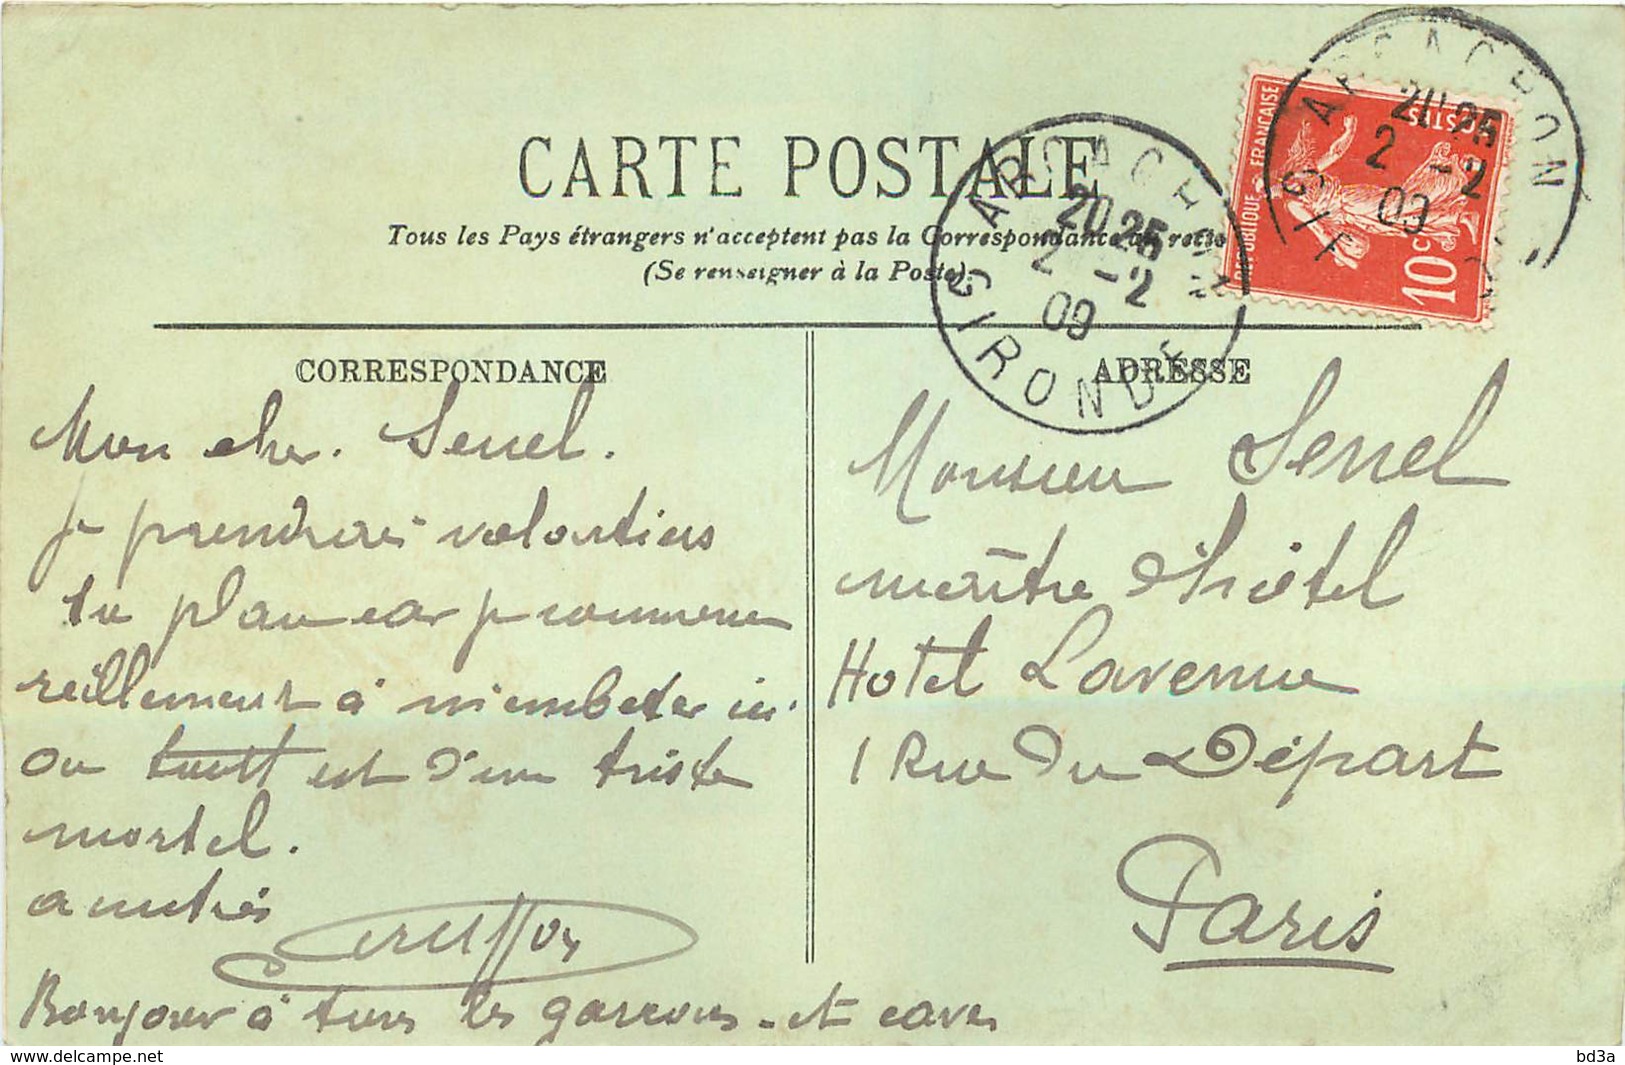 CARTE POSTALE
Tous les Pays étrangers n'acceptent pas la Correspondance au recto
(Se renseigner à la Poste).
ARCACHON
20 25
2 -2
09
GIRONDE
ARCACHON
20 25
2 -2
09
GI
RÉPUBLIQUE FRANÇAISE
POSTES
10c
CORRESPONDANCE
Mon cher. Senel.
je prendrais volontiers
ta place car je commence
réellement à m'embeter ici
ou tout est d'un triste
mortel.
amitiés
Bonjour à tous les garcons - et caves
ADRESSE
Monsieur Senel
maître d'hôtel
Hotel Lavenue
1 Rue du Départ
Paris
www.delcampe.net
bd3a